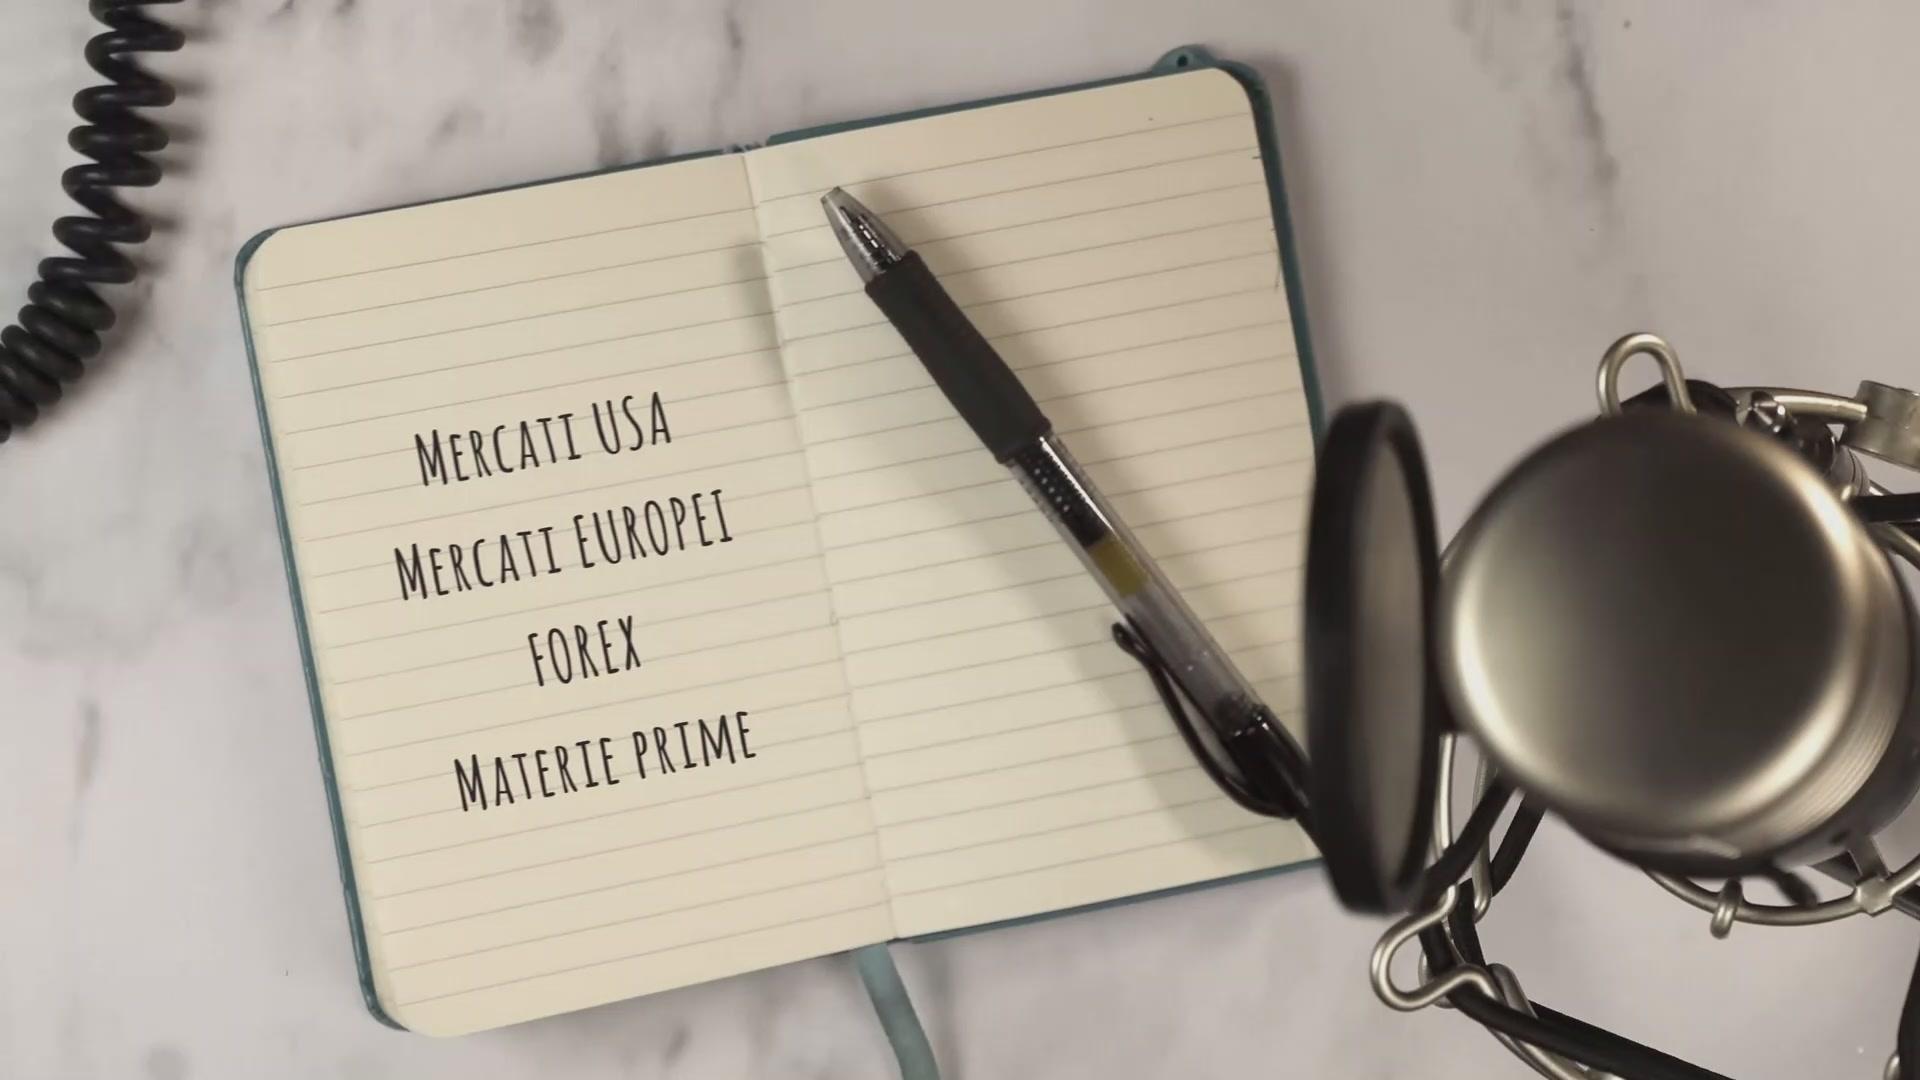 Mercati USA
Mercati EUROPEI
FOREX
Materie prime